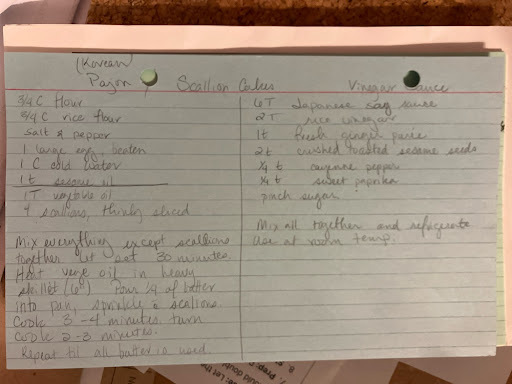 (Korean
Pajon Scallion Cakes
3/4 C flour
3/4 C rice flour
salt & pepper
1 large egg, beaten
1 C cold water
1 t sesame oil
1 T vegetable oil
4 scallions, thinly sliced
Mix everything except scallions
together let set 30 minutes.
Heat vege oil in heavy
skillet (6") Pour 1/4 of batter
into pan, sprinkle c scallions.
Cook 3-4 minutes turn
cook 2-3 minutes.
Repeat til all batter is used
Vinegar Sauce
6 T Japanese soy sauce
2 T rice vinegar
1 t fresh ginger paste
2 t crushed toasted sesame seeds
1/4 t cayenne pepper
1/4 t sweet paprika
pinch sugar
Mix all together and refrigerate
use at room temp.